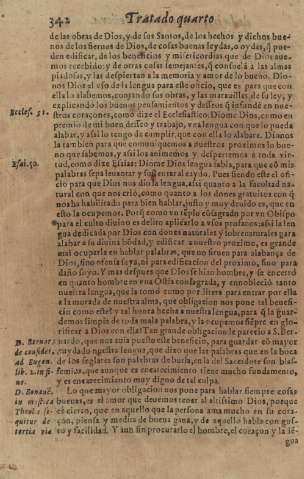 342 Tratado quarto
de las obras de Dios, y de sus Santos, de los hechos y dichos bue-
nos de los sieruos de Dios, de cosas buenas leydas, o oydas, q̃ pue-
den edificar, de los beneficios y misericordias que de Dios aue-
mos recebido: y de otras cosas semejantes, q̃ consuelã a las almas
piadosas, y las despiertan a la memoria y amor de lo bueno. Dio-
nos Dios el vso de la lengua para este oficio, que es para que con
ella lo alabemos, contando sus obras, y las marauillas, de su ley, y
explicando los buenos pensamientos y desseos q̃ infunde en nues-
Eccles. 51. tros coraçones, como dize el Ecclesiastico: Diome Dios, como en
premio de mi buen desseo y trabajo, vna lengua con que lo pueda
alabar, y assi lo tengo de cumplir, que con ella lo alabare. Dionos
la tambien para que comuniquemos a nuestros proximos lo bue-
no que sabemos, y assi los animemos y despertemos a toda vir-
Esai. 50. tud, como dize Esaias: Diome Dios lengua sabia, para que cõ mis
palabras sepa leuantar y sustentar al caydo. Pues siendo este el ofi-
cio para que Dios nos dio la lengua, assi quanto a la facultad na-
tural con que nos criò, como quanto a los dones gratuitos con q̃
nos ha habilitado para bien hablar, justo y muy deuido es, que en
esto la ocupemos. Porq̃ como vn templo cõsagrado por vn Obispo
para el culto diuino es delito aplicarlo a vsos profanos: assi la len
gua dedicada por Dios con dones naturales y sobrenaturales para
alabar a su diuina bõdad, y edificar a nuestro proximo, es grande
mal ocuparla en hablar palabras, que no siruen para alabança de
Dios, sino ofensa suya, ni para edificacion del proximo, sino para
daño suyo. Y mas despues que Dios se hizo hombre, y se encerrò
en quanto hombre en vna Ostia consagrada, y ennobleciò tanto
nuestra lengua, que la tomò como por litera para entrar por ella
a la morada de nuestra alma, que obligacion nos pone tal benefi-
cio como este! y tal honra hecha a nuestra lengua, para q̃ la guar-
demos limpia de toda mala palabra, y la ocupemos siẽpre en glo-
rificar a Dios con ella! Tan grande obligacion le pareciò a S. Ber-
D. Bernar. nardo, que nos auia puesto este beneficio, para guardar cõ mayor
de consider. cuydado nuestra lengua, que dize que las palabras que en la boca
ad Eugen. de los seglares son palabras de burla, en la del Sacerdote son blas-
lib. 2. in fi. femias, que aunque es encarecimiento tiene mucho fundamento,
y es encarecimiento muy digno de tal culpa.
D. Bonauẽ. Lo que mayor obligacion nos pone para hablar siempre cosas
in mistica buenas, es el amor que deuemos tener al altissimo Dios, porque
Theol. es cierto, que en aquello que la persona ama mucho en su cora-
çon, piensa y medita de buena gana, y de aquello habla con gus-
to y facilidad. Y aun sin procurarlo el hombre, el coraçon y la lẽ-
gua